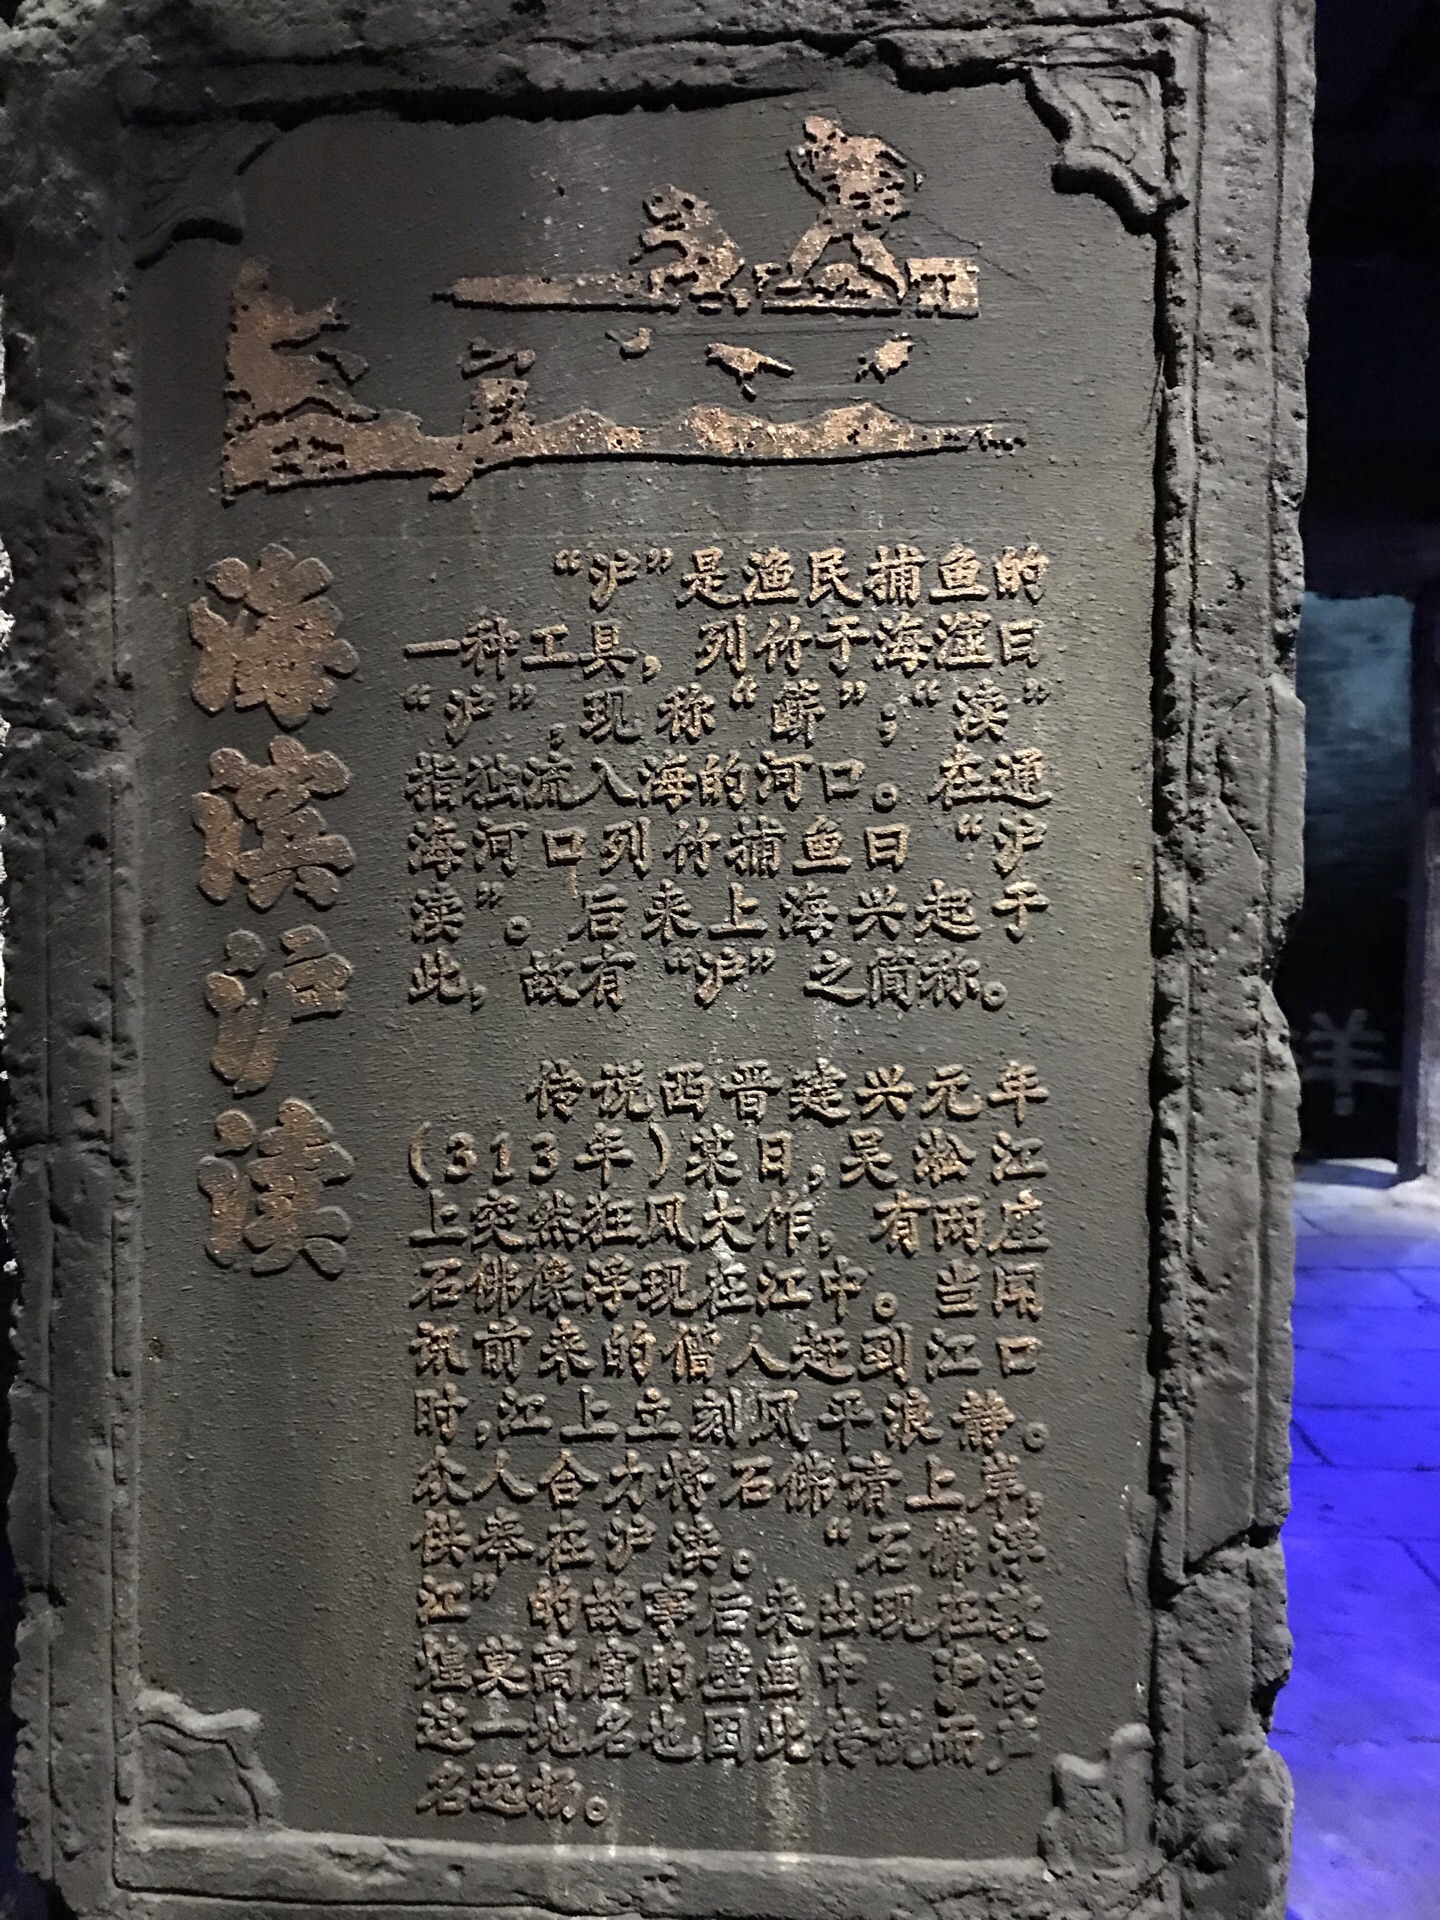 海滨沪渎
“沪”是渔民捕鱼的
一种工具，列竹于海澨曰
“沪”，现称“簖”；“渎”
指独流入海的河口。在通
海河口列竹捕鱼曰“沪
渎”。后来上海兴起于
此，故有“沪”之简称。
传说西晋建兴元年
(313年)某日，吴淞江
上突然狂风大作，有两座
石佛像浮现在江中。当闻
讯前来的僧人赶到江口
时，江上立刻风平浪静。
众人合力将石佛请上岸，
供奉在沪渎。“石佛浮
江”的故事后来出现在敦
煌莫高窟的壁画中，沪渎
这一地名也因此传说而声
名远扬。
洋